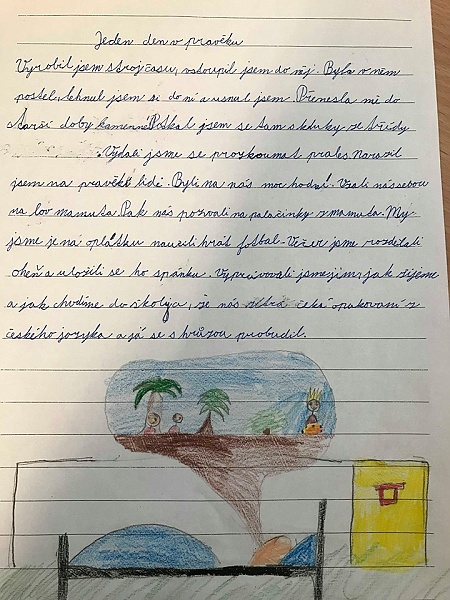 Jeden den v pravěku
Vyrobil jsem stroj času, vstoupil jsem do něj. Byla v něm
postel, lehnul jsem si do ní a usnul jsem. Přenesla mě do
starší doby kamenné. Potkal jsem se tam s kluky ze třídy
. Vydali jsme se prozkoumat prales. Narazil
jsem na pravěké lidi. Byli na nás moc hodní. Vzali nás sebou
na lov mamuta. Pak nás pozvali na palačinky z mamuta. My
jsme je na oplátku naučili hrát fotbal. Večer jsme rozdělali
oheň a uložili se ho spánku. Vyprávovali jsme jim, jak žijeme
a jak chodíme do školy a, že nás zítra čeká opakovaní z
českého jazyka a já se s hrůzou probudil.